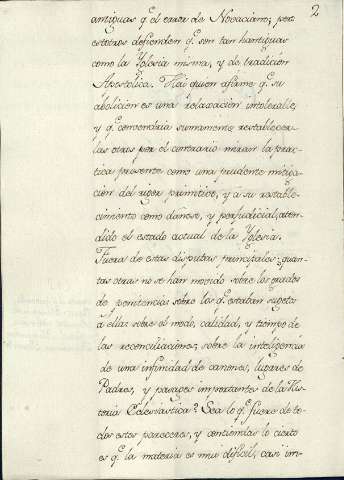 2
antiguas q.e el error de Novaciano; pero
estotros defienden q.e son tan hantiguas
como la Yglesia misma, y de tradición
Apostolica. Hai quien afirme q.e su
abolicion es una relaxación intolerable,
y q.e convendria sumamente restablecer-
las otros por el contrario miran la prac-
tica presente como una prudente mitiga-
ción del rigor primitivo, y á su restable-
cimiento como dañoso, y perjudicial, aten-
dido el estado actual de la Yglesia.
Fuera de estas disputas principales ¿quan-
tas otras no se han movido sobre los grados
de penitencias sobre los q.e estaban sugetos
á ellas sobre el modo, calidad, y tiempo de
las reconciliaciones, sobre la inteligencia
de una infinidad de canones, lugares de
Padres, y pasages importantes de la His-
toria Eclesiastica? Sea lo q.e fuere de to-
dos estos pareceres, y contiendas lo cierto
es q.e la materia es mui dificil, casi im-